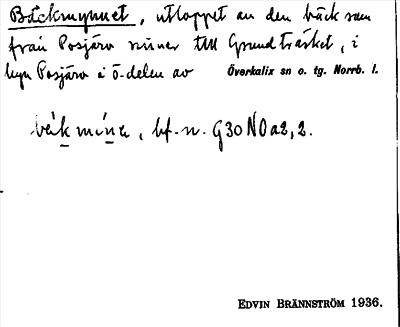 Bäckmynnet, utloppet av den bäck som
från Posjärv rinner till Grundträsket, i
byn Posjärv i ö-delen av Överkalix sn o. tg. Norrb. l.
bf. n. G30 NO a2, 2.
EDVIN BRÄNNSTRÖM 1936.